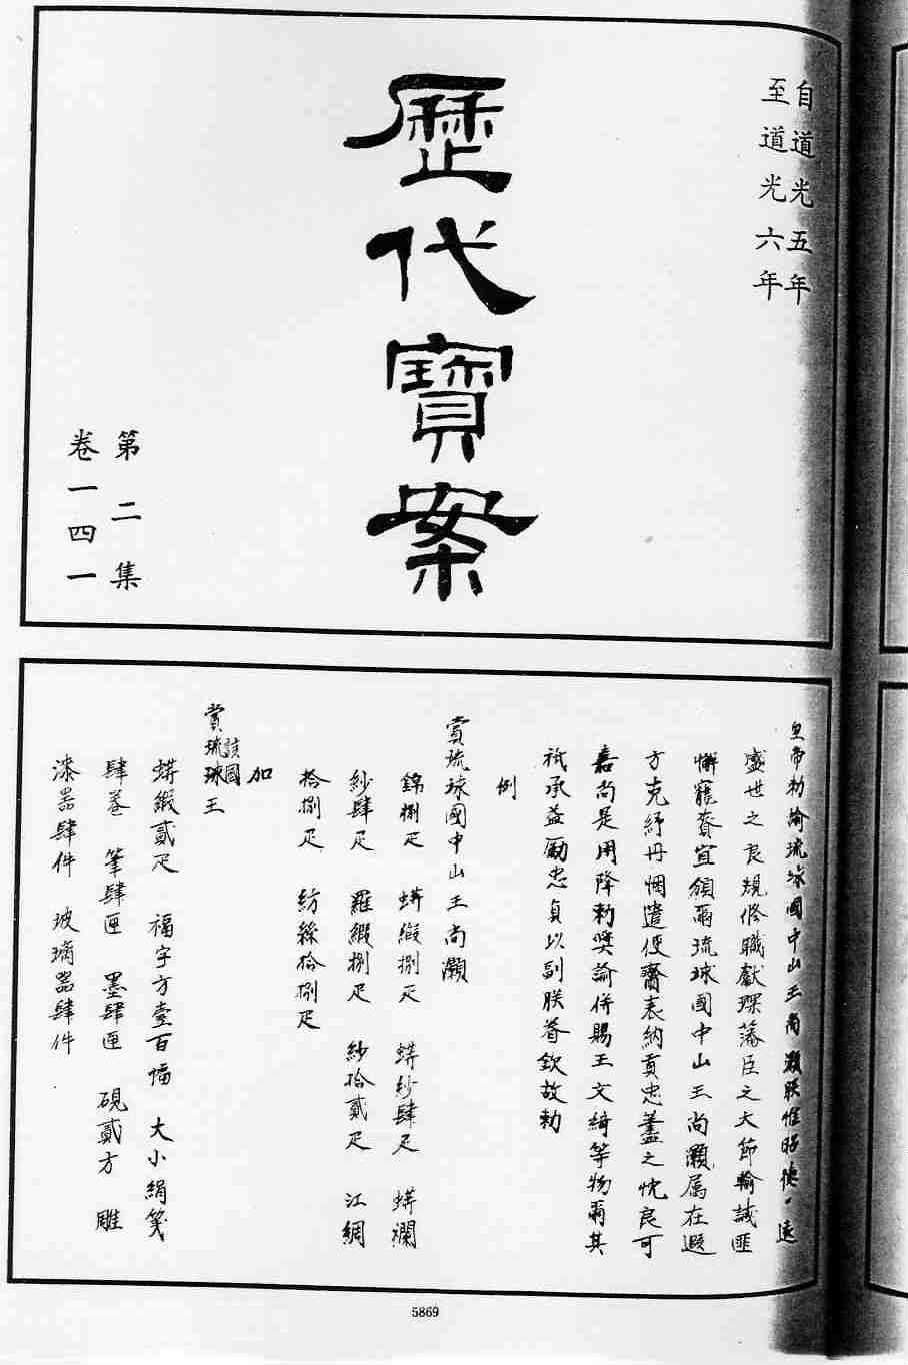 自道光五年
至道光六年
歷代寶案
第二集
卷一四一
皇帝勅諭琉球國中山王尚灝朕惟昭德遠
盛世之良規修職獻琛藩臣之大節輸誠匪
懈寵賚宜頒爾琉球國中山王尚灝属在遐
方克紓丹悃遣使齎表納貢忠藎之忱良可
嘉尚是用降勅獎諭併賜王文綺等物爾其
祇承益勵忠貞以副朕眷欽故勅
例
賞琉球國中山王尚灝
錦捌疋 蟒緞捌疋 蟒紗肆疋 蟒襴
紗肆疋 羅緞捌疋 紗拾貳疋 江綢
拾捌疋 紡絲拾捌疋
加
賞該國琉球王
蟒緞貳疋 福字方壹百幅 大小絹箋
肆卷 筆肆匣 墨肆匣 硯貳方 雕
漆器肆件 玻璃器肆件
5869